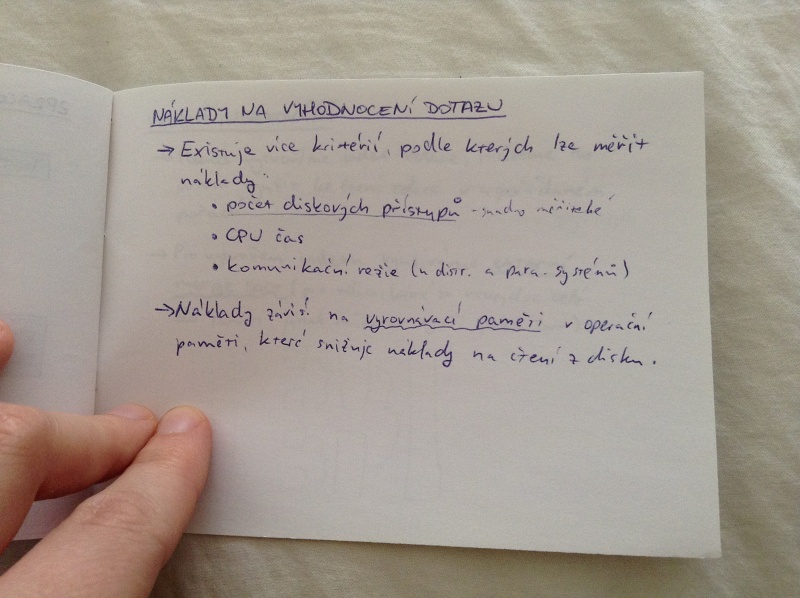 NÁKLADY NA VYHODNOCENÍ DOTAZU
→ Existuje více kritérií, podle kterých lze měřit
náklady:
• počet diskových přístupů - snadno měřitelné
• CPU čas
• komunikační režie (u distr. a para. systémů)
→ Náklady závisí na vyrovnávací paměti v operační
paměti, které snižuje náklady na čtení z disku.